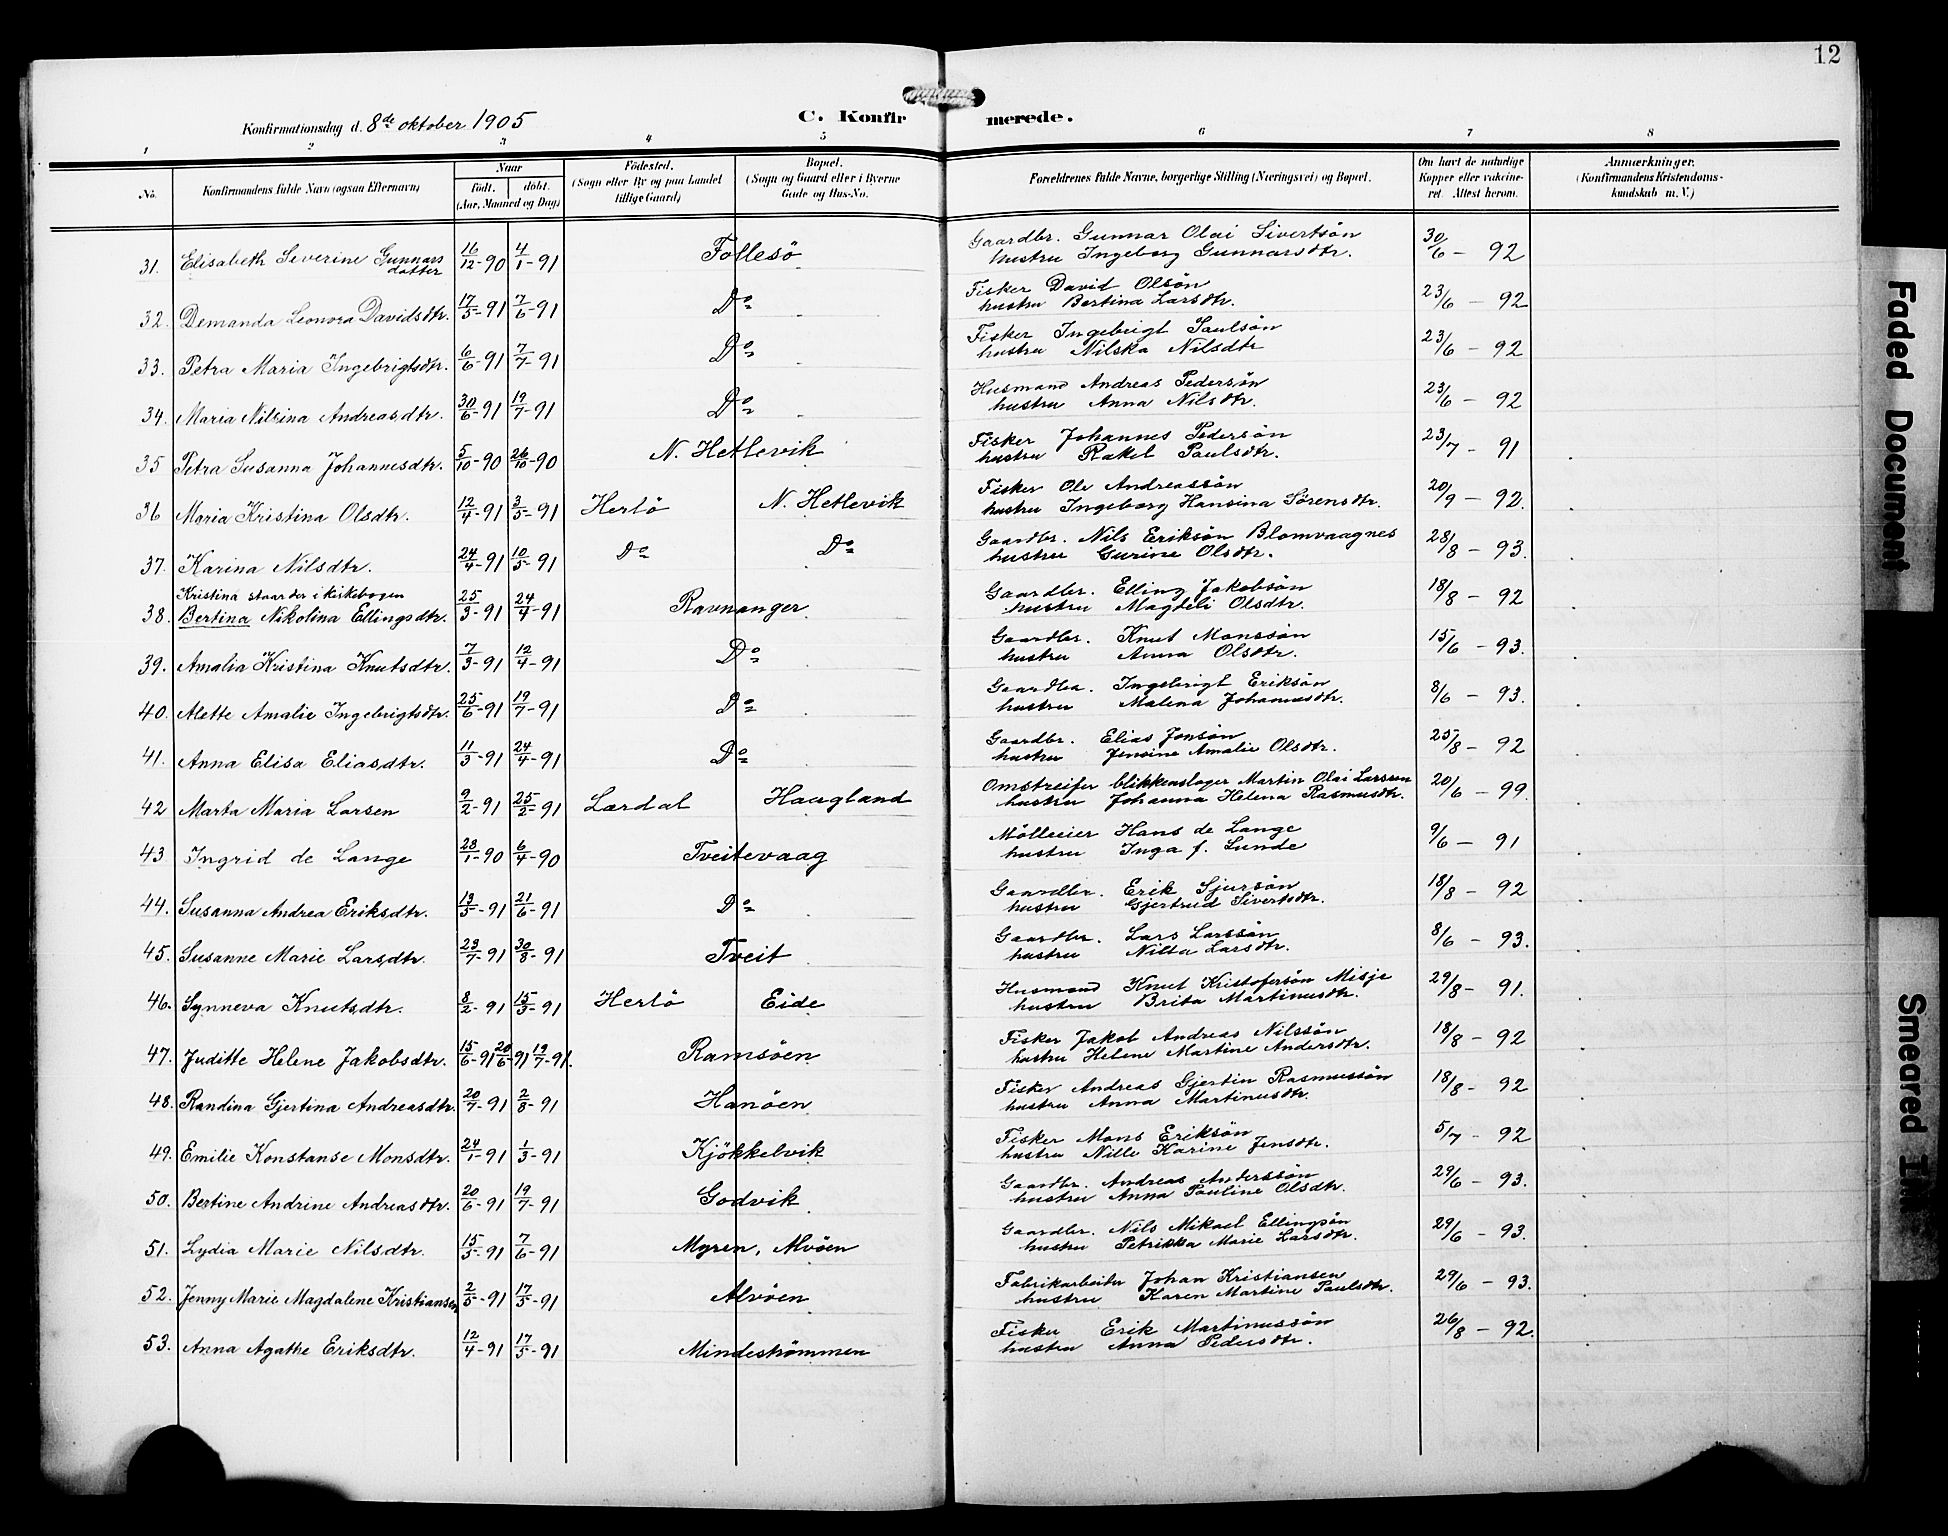 12
Konfirmationsdag d. 8de oktober 1905
C. Konfirmerede.
1 2 3 4 5 6 7 8
No. Konfirmandens fulde Navn (ogsaa Efternavn) Naar født. døbt. (Aar, Maaned og Dag) Fødested. (Sogn eller By og paa Landet tillige Gaard) Bopæl. (Sogn og Gaard eller i Byerne Gade og Hus-No. Forældrenes fulde Navne, borgerlige Stilling (Næringsvei) og Bopæl. Om havt de naturlige Kopper eller vakcineret. Attest herom. Anmærkninger. (Konfirmandens Kristendomskundskab m. V.)
31. Elisabeth Severine Gunnarsdatter 16/12-90 4/1-91 Follesö Gaardbr. Gunnar Olai Sivertsön 30/6 - 92
hustru Ingeborg Gunnarsdtr.
32. Demanda Leonora Davidsdtr. 17/5-91 7/6-91 Do Fisker David Olsön 23/6 - 92
hustru Bertina Larsdtr.
33. Petra Maria Ingebrigtsdtr. 6/6-91 7/7-91 Do Fisker Ingebrigt Paulsön 23/6 - 92
hustru Nilska Nilsdtr
34. Maria Nilsina Andreasdtr. 30/6-91 19/7-91 Do Husmand Andreas Pedersön 23/6 - 92
hustru Anna Nilsdtr.
35 Petra Susanna Johannesdtr. 5/10-90 26/10-90 N. Hetlevik Fisker Johannes Pedersön 23/7 - 91
hustru Rakel Paulsdtr.
36 Maria Kristina Olsdtr. 12/4-91 3/5-91 Herlö N. Hetlevik Fisker Ole Andreassön 20/9 - 92.
hustru Ingeborg Hansina Sörensdtr.
37. Karina Nilsdtr. 24/4-91 10/5-91 Do Do Gaardbr. Nils Eriksön Blomvaagnes 28/8 - 93.
hustru Gurine Olsdtr.
Kristina staar der i kirkebogen
38. Bertina Nikolina Ellingsdtr. 25/3-91 24/4-91 Ravnanger Gaardbr. Elling Jakobsön 18/8 - 92
hustru Magdeli Olsdtr.
39. Amalia Kristina Knutsdtr. 7/3-91 12/4-91 Do Gaardbr. Knut Monssön 15/6 - 93.
hustru Anna Olsdtr.
40. Alette Amalie Ingebrigtsdtr. 25/6-91 19/7-91 Do Gaardbr. Ingebrigt Eriksön 8/6 - 93.
hustru Malena Johannesdtr.
41. Anna Elisa Eliasdtr. 11/3-91 24/4-91 Do Gaardbr. Elias Jonsön 25/8 - 92
hustru Jensine Amalie Olsdtr.
42 Marta Maria Larsen 9/2-91 25/2-91 Lærdal Haugland Omstreifer blikkenslager Martin Olai Larsen 20/6 - 99.
hustru Johanna Helena Rasmusdtr.
43 Ingrid de Lange 23/1-90 6/4-90 Tveitevaag Mölleeier Hans de Lange 9/6 - 91
hustru Inga f. Lunde
44. Susanna Andrea Eriksdtr. 13/5-91 21/6-91 Do Gaardbr. Erik Sjursön 18/8 - 92
hustru Gjertrud Sivertsdtr.
45. Susanne Marie Larsdtr. 23/7-91 30/8-91 Tveit Gaardbr. Lars Larssön 8/6 - 93.
hustru Nilla Larsdtr.
46. Synneva Knutsdtr. 8/2-91 15/3-91 Herlö Eide Husmand Knut Kristofersön Misje 29/8 - 91.
hustru Brita Martinusdtr.
47. Juditte Helene Jakobsdtr. 15/6-91 20/6-91 19/7-91. Ramsöen Fisker Jakob Andreas Nilssön 18/8 - 92
hustru Helene Martine Andersdtr.
48. Randina Gjertina Andreasdtr. 20/7-91 2/8-91 Hanöen Fisker Andreas Gjertin Rasmussön 18/8 - 92
hustru Anna Martinusdtr.
49. Emilie Konstanse Monsdtr. 24/1-91 1/3-91 Kjökkelvik Fisker Mons Eriksön 5/7 - 92
hustru Nille Karine Jensdtr.
50. Bertine Andrine Andreasdtr. 20/6-91 19/7-91 Godvik Gaardbr. Andreas Anderssön 29/6 - 93.
hustru Anna Pauline Olsdtr.
51. Lydia Marie Nilsdtr. 15/5-91 7/6-91 Myren, Alvöen Gaardbr. Nils Mikael Ellingsön 29/6 - 93.
hustru Petrikka Marie Larsdtr.
52. Jenny Marie Magdalene Kristiansen 2/5-91 17/5-91 Alvöen Fabrikarbeider Johan Kristiansen 29/6 - 93.
hustru Karen Martine Paulsdtr.
53. Anna Agathe Eriksdtr. 12/4-91 17/5-91 Mindeströmmen Fisker Erik Martinussön 26/8 - 92.
hustru Anna Pedersdtr.
Faded Document
Smeared Ink